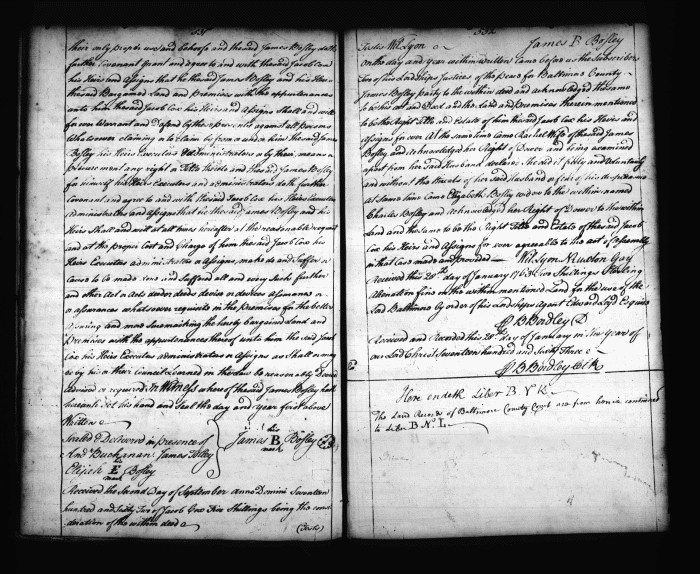 531
their only proper use and behoofe and the said James Bosley doth
further Covenant Grant and agree to and with the said Jacob Cox
his Heirs and Assigns that he the said James Bosley and his Heirs
the said Bargained Land and Premises with the appurtenances
unto him the said Jacob Cox his Heirs and Assigns shall and will
for ever Warrant and defend by these presents against all persons
whatsoever claiming or to Claim by from or under him the said James
Bosley his Heirs Executors Administrators or by their means or
procurement any right or Title thereto and the said James Bosley
for himself his Heirs Executors and administrators doth further
Covenant and agree to and with the said Jacob Cox his Heirs Executors
administrators and Assigns that he the said James Bosley and his
Heirs shall and will at all times hereafter at the reasonable request
and at the proper Cost and Charge of him the said Jacob Cox his
Heirs Executors administrators or Assigns, make do and Suffer or
Cause to be made done and Suffered all and every Such further
and other Act or Acts deed or deeds device or devices assurance or
assurances whatsoever requisite in the premises for the better
and more sure making the hereby bargained Land and
Premises with the appurtenances thereof unto him the said Jacob
Cox his Heirs Executors administrators or Assigns as shall or may
be by his or their Council Learned in the Law be reasonably
advised or required In Witness whereof the said James Bosley hath
hereunto set his hand and Seal the day and year first above
Written
Sealed & Delivered in presence of
And Buchanan James Tilley
his
Elijah E Bosley
mark
his
James B Bosley
mark
Received the Second Day of September anno Domini Seventeen
hundred and Sixty Two of Jacob Cox Five Shillings being the consi
deration of the within deed
(Teste)
532
Testes W. Lyon
James B Bosley
On the day and year within written Came before us the Subscribers
Two of his Lordships Justices of the Peace for Baltimore County
James Bosley party to the within deed and acknowledged the same
to be his act and Deed and the Land and Premises therein mentioned
to be the Right Title and Estate of him the said Jacob Cox his Heirs and
Assigns for ever At the same time Came Rachel Wife of the said James
Bosley and acknowledged her Right of Dower and being examined
apart from her said Husband declares She did it freely and voluntarily
and without the threats of her said Husband or fear of his displeasure
at same time Came Elizabeth Bosley widow to the within named
Charles Bosley and acknowledged her Right of Dower to the within
Land and the same to be the Right Title and Estate of the said Jacob
Cox his Heirs and Assigns for ever agreeable to the act of Assembly
in that Case made and provided W. Lyon N. Ruxton Gay
Received this 20th day of January 1763 Two Shillings Sterling
Alienation fine on the within mentioned Land for the use of the
Lord Baltimore by order of his Lordships Agent Edward Loyd Esquire
B Bordley
Received and Recorded this 20th day of January in the Year of
our Lord Christ Seventeen hundred and Sixty Three
B Bordley Clk
Here endeth Liber B. N K.
The Land Records of Baltimore County Court are from hence continued
to Liber B. N. L.